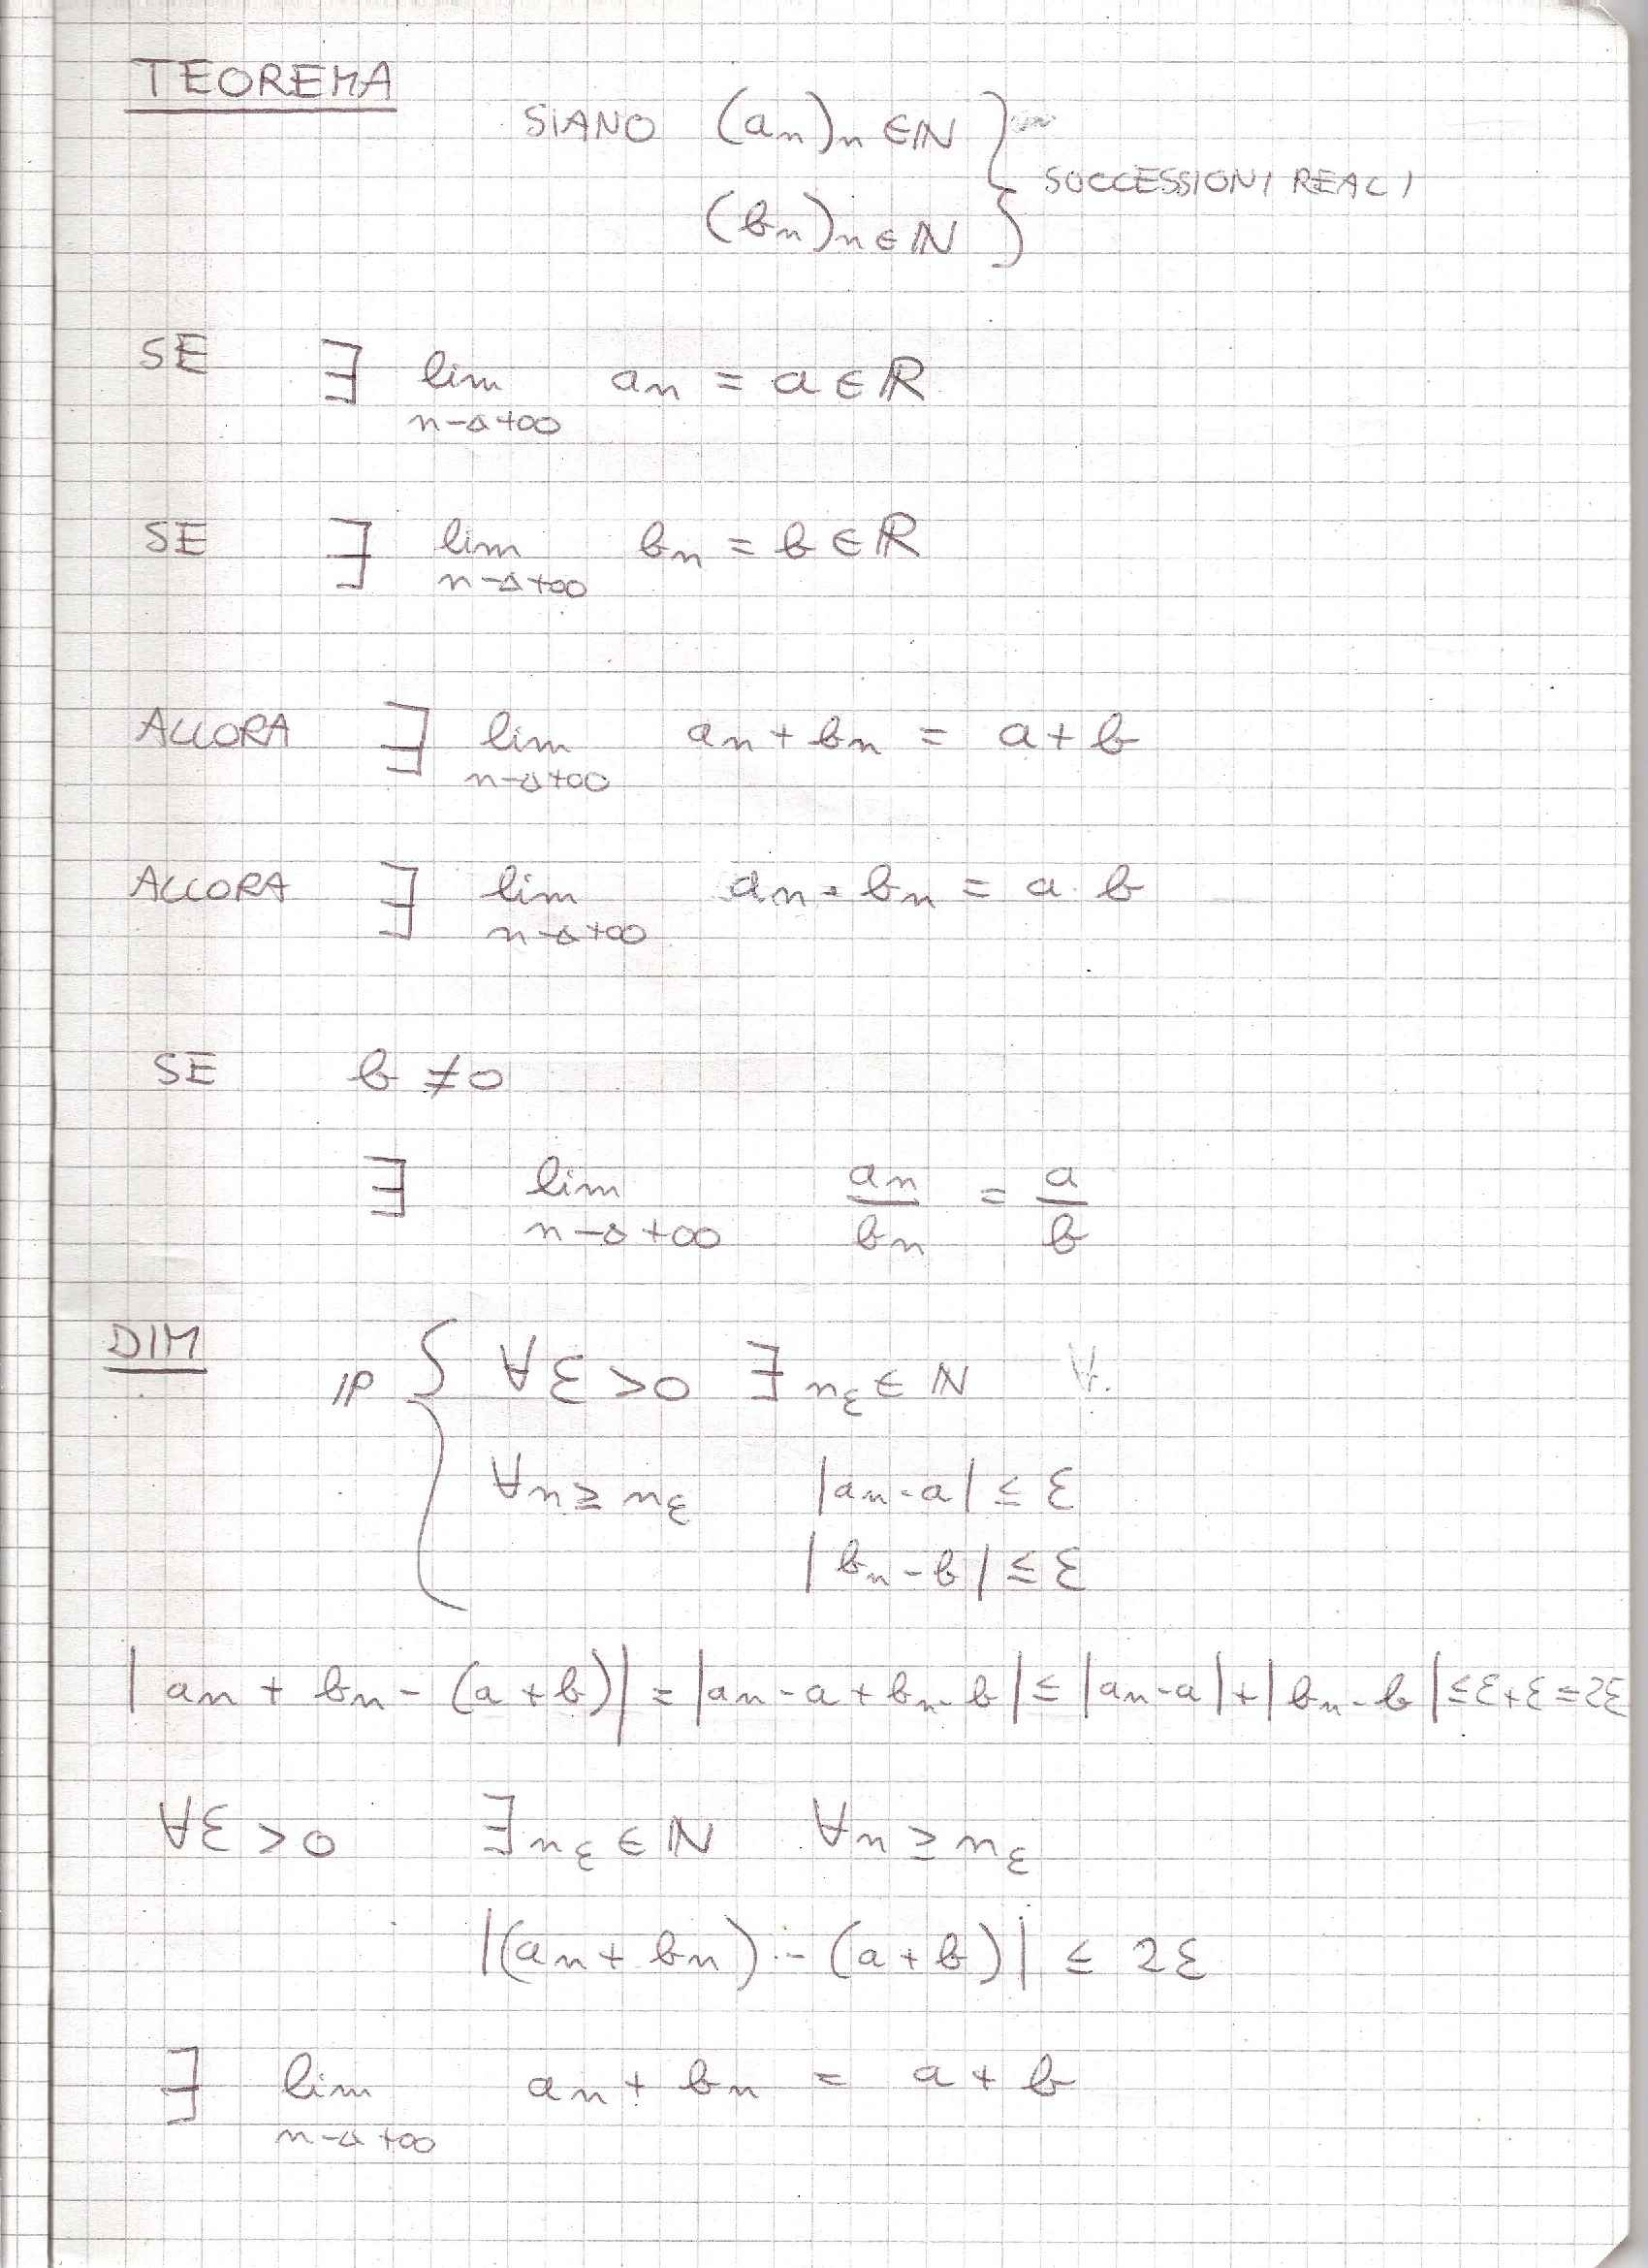 TEOREMA
SIANO (an)n ∈ ℕ
SUCCESSIONI REALI
(bn)n ∈ ℕ
SE ∃ lim an = a ∈ ℝ
n→+∞
SE ∃ lim bn = b ∈ ℝ
n→+∞
ALLORA ∃ lim an + bn = a + b
n→+∞
ALLORA ∃ lim an · bn = a · b
n→+∞
SE b ≠ 0
∃ lim an/bn = a/b
n→+∞
DIM
IP { ∀ε > 0 ∃ nε ∈ ℕ
∀n ≥ nε |an - a| ≤ ε
|bn - b| ≤ ε
|an + bn - (a + b)| = |an - a + bn - b| ≤ |an - a| + |bn - b| ≤ ε + ε = 2ε
∀ε > 0 ∃ nε ∈ ℕ ∀n ≥ nε
|(an + bn) - (a + b)| ≤ 2ε
∃ lim an + bn = a + b
n→+∞